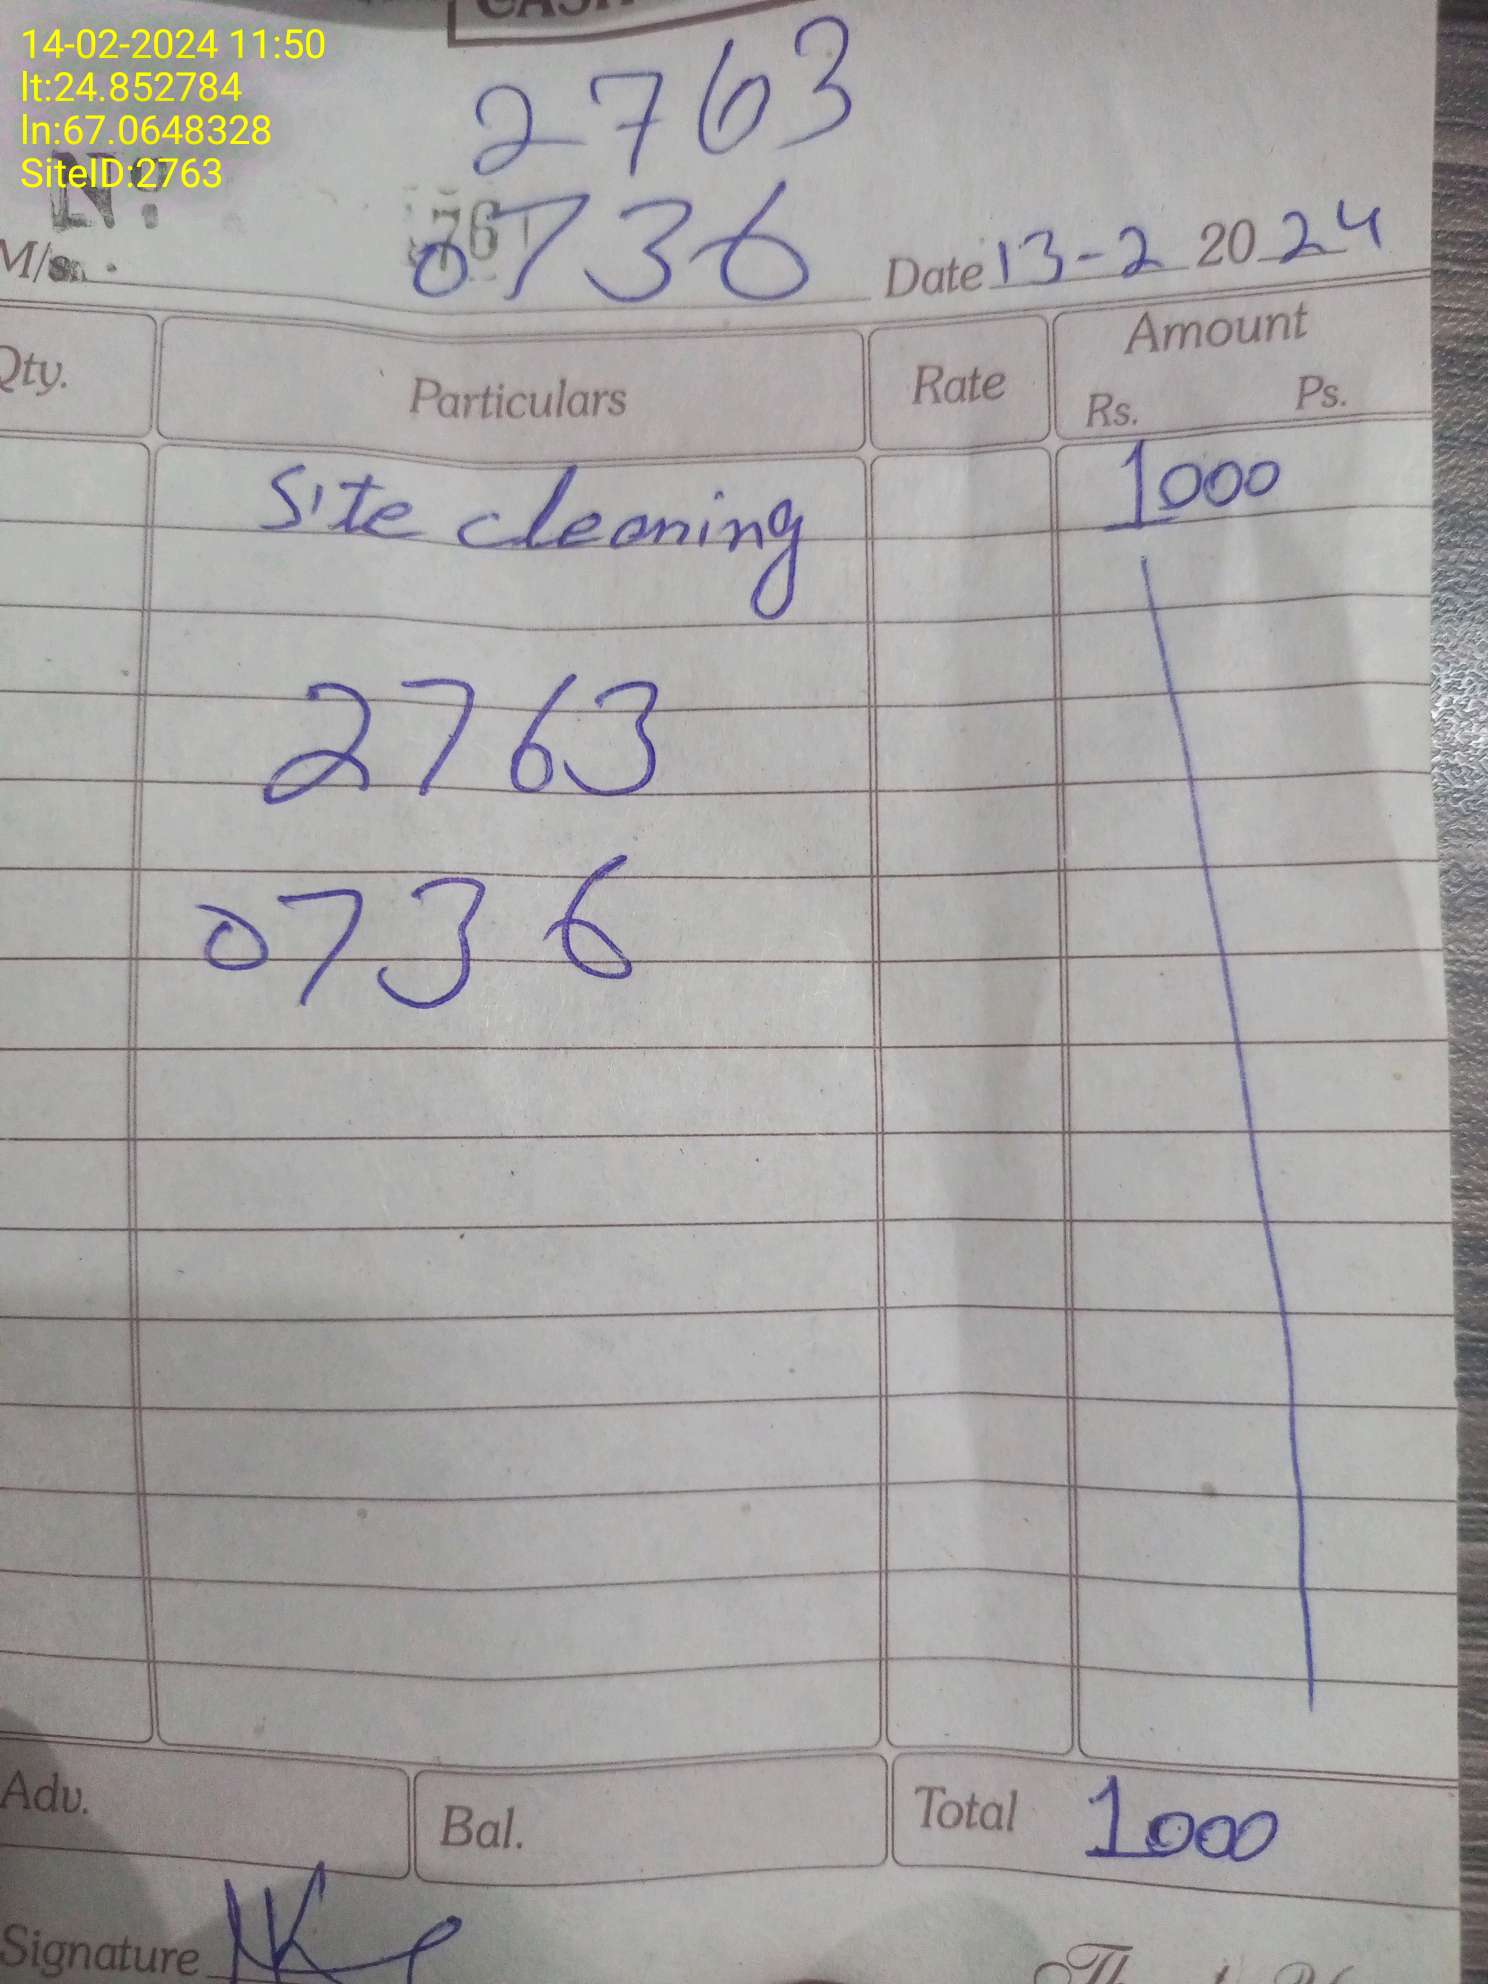 CASH
14-02-2024 11:50
lt:24.852784
ln:67.0648328
SiteID:2763
2763
Nº
0736
M/s.
Date 13-2 2024
Qty. Particulars Rate Amount
Rs. Ps.
Site cleaning 1000
2763
0736
Adv. Bal. Total 1000
Signature